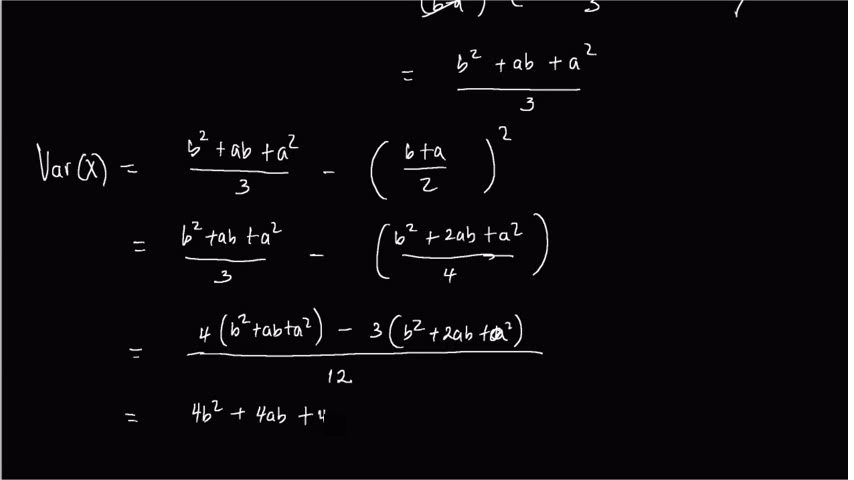 = b² + ab + a² / 3
Var(X) = b² + ab + a² / 3 - ( b + a / 2 )²
= b² + ab + a² / 3 - ( b² + 2ab + a² / 4 )
= 4 ( b² + ab + a² ) - 3 ( b² + 2ab + a² ) / 12
= 4b² + 4ab + 4